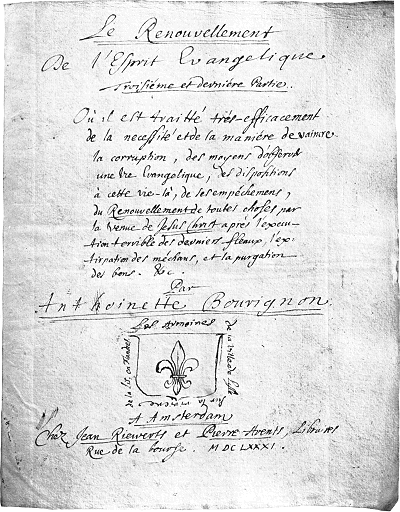 Le Renouvellement
De l'Esprit Evangelique
Troisiéme et derniére Partie.
Où il est traitté trés-efficacement
de la necessité et de la maniére de vaincre
la corruption, des moyens d'observer
une vie Evangelique, des dispositions
à cette vie-là, de ses empéchemens,
du Renouvellement de toutes choses par
la venue de Jesus Christ aprés l'execu-
tion terrible des derniers fleaux, l'ex-
tirpation des méchans, et la purgation
des bons. &c.
Par
Anthoinette Bourignon.
Les Armoiries
de la ville de Lille
de la
A Amsterdam
Chez Jean Riewerts et Pierre Arents, Libraires
Rue de la bourse. MDCLXXXI.